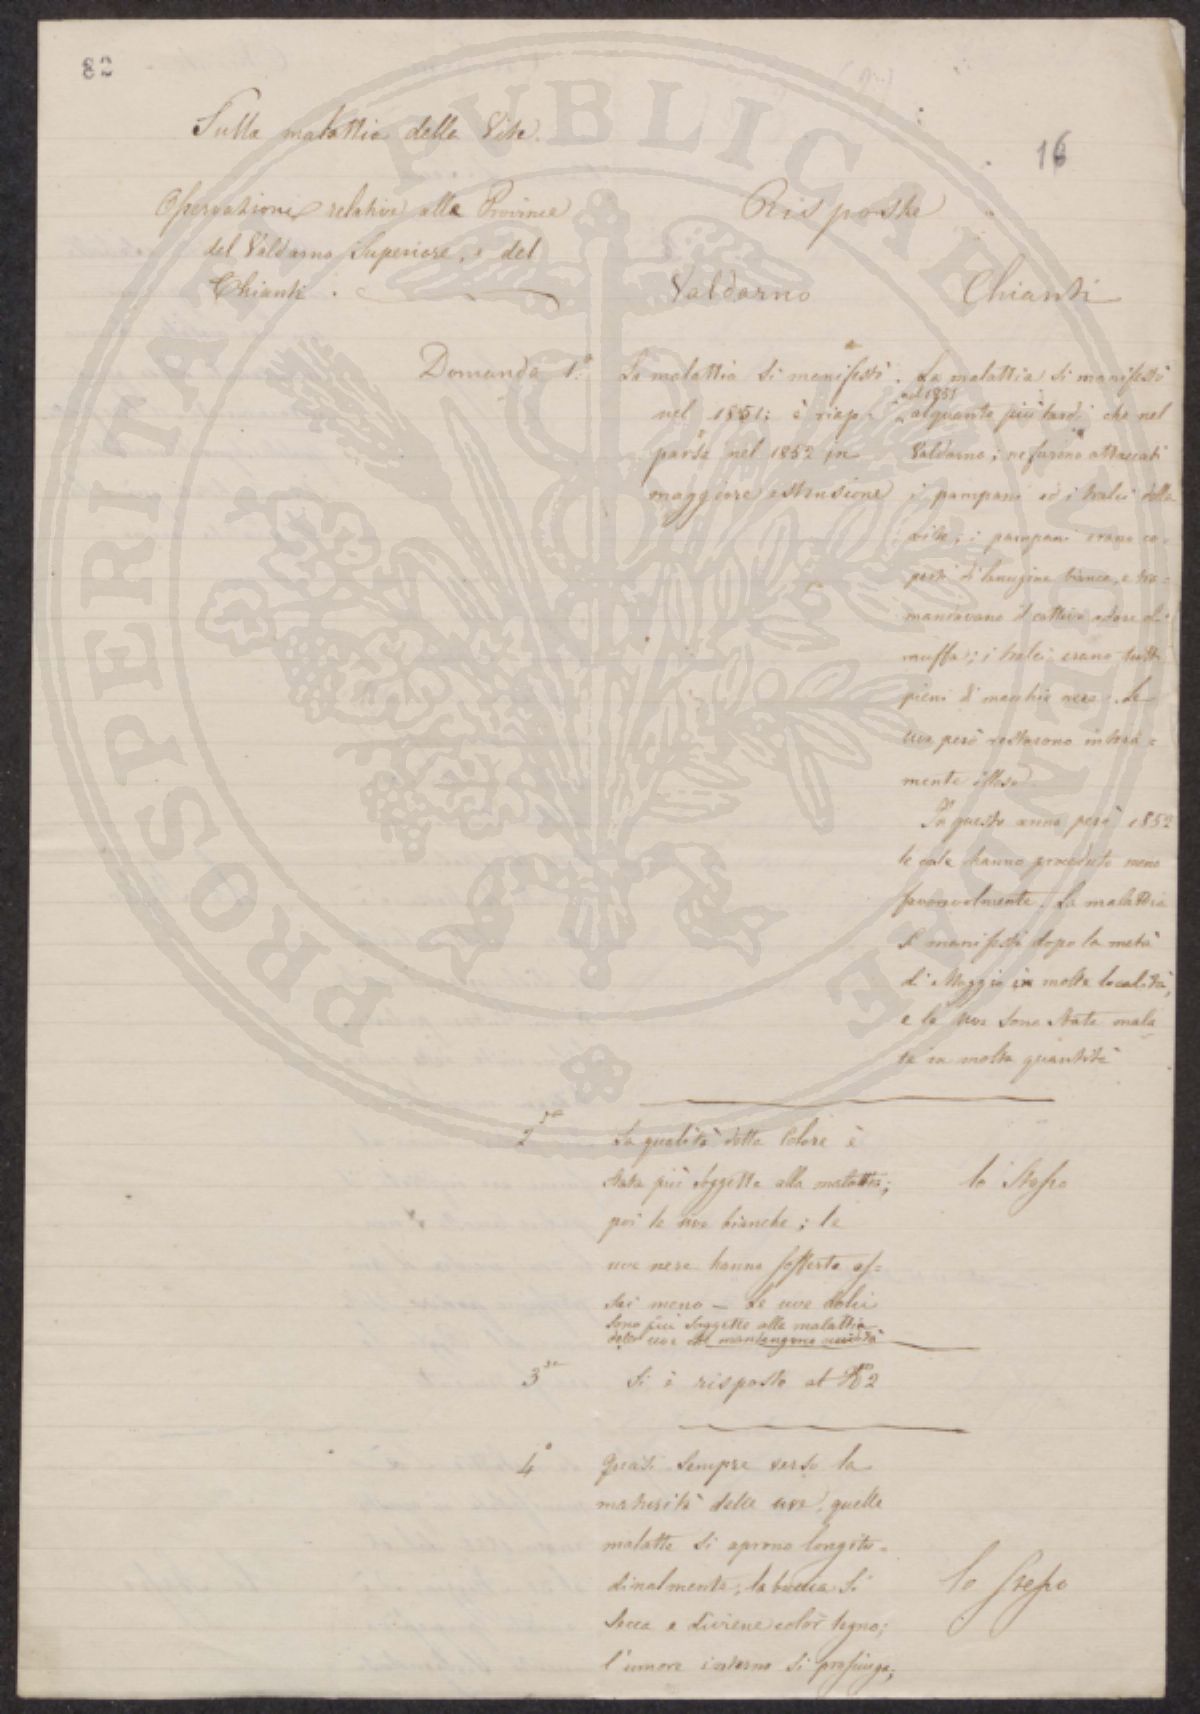 82
16
Sulla malattia della Vite.
Osservazioni relative alle Province
del Valdarno Superiore, e del
Chianti.
Risposte
Valdarno
Chianti
Domanda 1.a
La malattia si manifestò
nel 1851; è riap-
parsa nel 1852 in
maggiore estensione
La malattia si manifestò
nel 1851
alquanto più tardi che nel
Valdarno; ne furono attaccati
i pampani ed i tralci della
vite; i pampani erano co-
perti di lanugine bianca, e tra=
mandavano il cattivo odore di
muffa; i tralci erano tutti
pieni di macchie nere. Le
uve però restarono intera=
mente illese.
In questo anno però 1852
le cose hanno proceduto meno
favorevolmente. La malattia
si manifestò dopo la metà
di Maggio in molte località,
e le uve sono state mala-
te in molta quantità
2da
La qualità detta Colore è
stata più soggetta alla malattia;
poi le uve bianche; le
uve nere hanno sofferto as=
sai meno — Le uve dolci
sono più soggette alla malattia
delle uve che mantengono acidità
lo Stesso
3za
Si è risposto al No 2
4o
Quasi sempre verso la
maturità delle uve, quelle
malatte si aprono longitu-
dinalmente; la buccia si
secca e diviene color legno;
l'umore interno si prosciuga;
lo stesso
PROSPERITATI PVBLICAE AVGENDAE